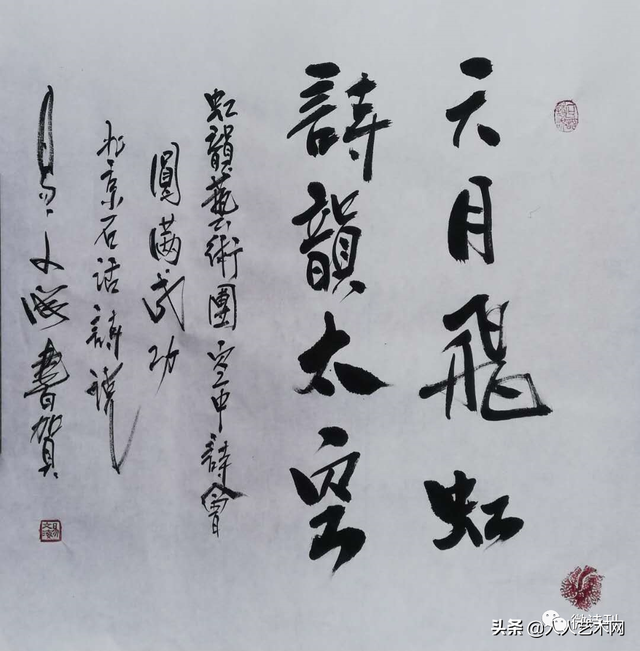 天月飛虹
詩韻太空
虹韻藝術團空中詩會
圓滿成功
北京石话詩
書賀
头条@人人艺术网